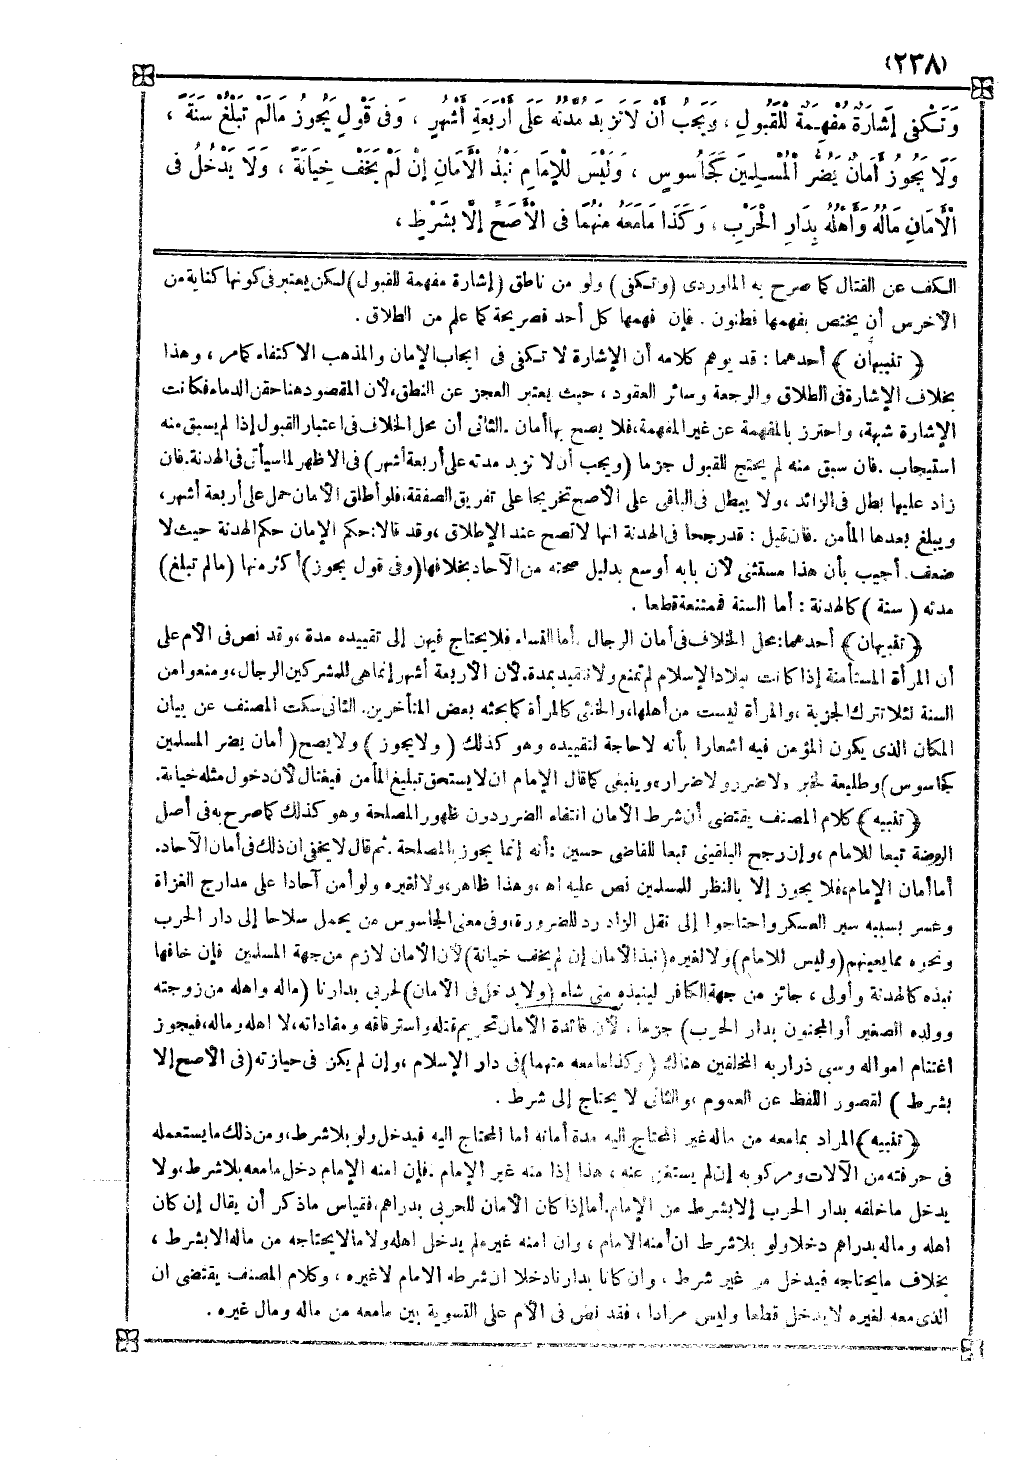 (٢٣٨)
وَتَكْفِى إِشَارَةٌ مُفْهِمَةٌ لِلْقَبُولِ ، وَيَجِبُ أَنْ لَا تَزِيدَ مُدَّتُهُ عَلَى أَرْبَعَةِ أَشْهُرٍ ، وَفِى قَوْلٍ يَجُوزُ مَا لَمْ تَبْلُغْ سَنَةً ،
وَلَا يَجُوزُ أَمَانٌ يَضُرُّ الْمُسْلِمِينَ كَجَاسُوسٍ ، وَلَيْسَ لِلْإِمَامِ نَبْذُ الْأَمَانِ إِنْ لَمْ يَخَفْ خِيَانَةً ، وَلَا يَدْخُلُ فِى
الْأَمَانِ مَالُهُ وَأَهْلُهُ بِدَارِ الْحَرْبِ ، وَكَذَا مَا مَعَهُ مِنْهُمَا فِى الْأَصَحِّ إِلَّا بِشَرْطٍ ،
الكف عن القتال كما صرح به الماوردى (وتكفى) ولو من ناطق (إشارة مفهمة للقبول) لكن يعتبر فى كونها كناية من
الآخرس أن يختص بفهمها فطنون . فإن فهمها كل أحد فصريحة كما علم من الطلاق .
﴿ تنبيهان ﴾ أحدهما : قد يوهم كلامه أن الإشارة لا تكفى فى ايجاب الإمان والمذهب الاكتفاء كما مر ، وهذا
بخلاف الإشارة فى الطلاق والرجعة وسائر العقود ، حيث يعتبر العجز عن النطق ، لأن المقصود هنا حقن الدماء فكانت
الإشارة شبهة ، واحترز بالمفهمة عن غير المفهمة ، فلا يصح بها أمان . الثانى أن محل الخلاف فى اعتبار القبول إذا لم يسبق منه
استيجاب . فان سبق منه لم يحتج للقبول جزما (ويجب أن لا تزيد مدته على أربعة أشهر) فى الاظهر لما سيأتى فى الهدنة . فان
زاد عليها بطل فى الزائد ، ولا يبطل فى الباقى على الأصح تخريجا على تفريق الصفقة ، فلو أطلق الأمان حمل على أربعة أشهر ،
ويبلغ بعدها المأمن . فان قيل : قد رجحا فى الهدنة انها لا تصح عند الإطلاق ، وقد قالا : حكم الإمان حكم الهدنة حيث لا
ضعف . أجيب بأن هذا مستثنى لأن بابه أوسع بدليل صحته من الآحاد بخلافها (وفى قول يجوز) أكثر منها (مالم تبلغ)
مدته ( سنة ) كالهدنة : أما السنة فممتنعة قطعا .
﴿ تنبيهان ﴾ أحدهما : محل الخلاف فى أمان الرجال . أما النساء فلا يحتاج فيهن إلى تقييده مدة ، وقد نص فى الأم على
أن المرأة المستأمنة إذا كانت ببلاد الإسلام لم تمنع ولا تقيد بمدة . لأن الأربعة أشهر إنما هى للمشركين الرجال ، ومنعوا من
السنة لئلا تترك الجزية ، والمرأة ليست من أهلها ، والخنثى كالمرأة كما بحثه بعض المتأخرين . الثانى سكت المصنف عن بيان
المكان الذى يكون المؤمن فيه اشعارا بأنه لا حاجة لتقييده وهو كذلك ( ولا يجوز ) ولا يصح ( أمان يضر المسلمين
كجاسوس ) وطليعة لخبر « لا ضرر ولا ضرار » وينبغى كما قال الإمام ان لا يستحق تبليغ المأمن فيغتال لأن دخول مثله خيانة .
﴿ تنبيه ﴾ كلام المصنف يقتضى أن شرط الأمان انتفاء الضرر دون ظهور المصلحة وهو كذلك كما صرح به فى أصل
الروضة تبعا للامام ، وإن رجح البلقينى تبعا للقاضى حسين : أنه إنما يجوز بالمصلحة . ثم قال لا يخفى ان ذلك فى أمان الآحاد .
أما أمان الإمام ، فلا يجوز إلا بالنظر للمسلمين نص عليه اه ، وهذا ظاهر ، ولا لغيره ولو أمن آحادا على مدارج الغزاة
وعسر بسببه سير العسكر واحتاجوا إلى نقل الزاد رد للضرورة ، وفى معنى الجاسوس من يحمل سلاحا إلى دار الحرب
ونحوه مما يعينهم (وليس للامام) ولا لغيره (نبذ الأمان إن لم يخف خيانة) لأن الأمان لازم من جهة المسلمين فإن خافها
نبذه كالهدنة وأولى ، جائز من جهة الكافر لينبذه متى شاء (ولا يدخل فى الأمان) لحربى بدارنا (ماله واهله من زوجته
وولده الصغير أو المجنون بدار الحرب) جزما ، لأن فائدة الأمان تحريم قتله واسترقاقه ومفاداته ، لا اهله وماله ، فيجوز
اغتنام امواله وسبى ذراريه المخلفين هناك (وكذا ما معه منهما) فى دار الإسلام ، وإن لم يكن فى حيازته (فى الأصح إلا
بشرط ) لقصور اللفظ عن العموم ، والثانى لا يحتاج إلى شرط .
﴿ تنبيه ﴾ المراد بما معه من ماله غير المحتاج اليه مدة أمانه اما المحتاج اليه فيدخل ولو بلا شرط ، ومن ذلك ما يستعمله
فى حرفته من الآلات ومركوبه إن لم يستغن عنه ، هذا إذا منه غير الإمام . فإن امنه الإمام دخل ما معه بلا شرط ، ولا
يدخل ما خلفه بدار الحرب إلا بشرط من الإمام . أما إذا كان الأمان للحربى بدارهم ، فقياس ما ذكر أن يقال إن كان
اهله وماله بدارهم دخلا ولو بلا شرط ان أمنه الامام ، وان امنه غيره لم يدخل اهله ولا مالا يحتاجه من ماله الا بشرط ،
بخلاف ما يحتاجه فيدخل من غير شرط ، وان كانا بدارنا دخلا ان شرطه الامام لا غيره ، وكلام المصنف يقتضى ان
الذى معه لغيره لا يدخل قطعا وليس مرادا ، فقد نص فى الأم على التسوية بين ما معه من ماله ومال غيره .